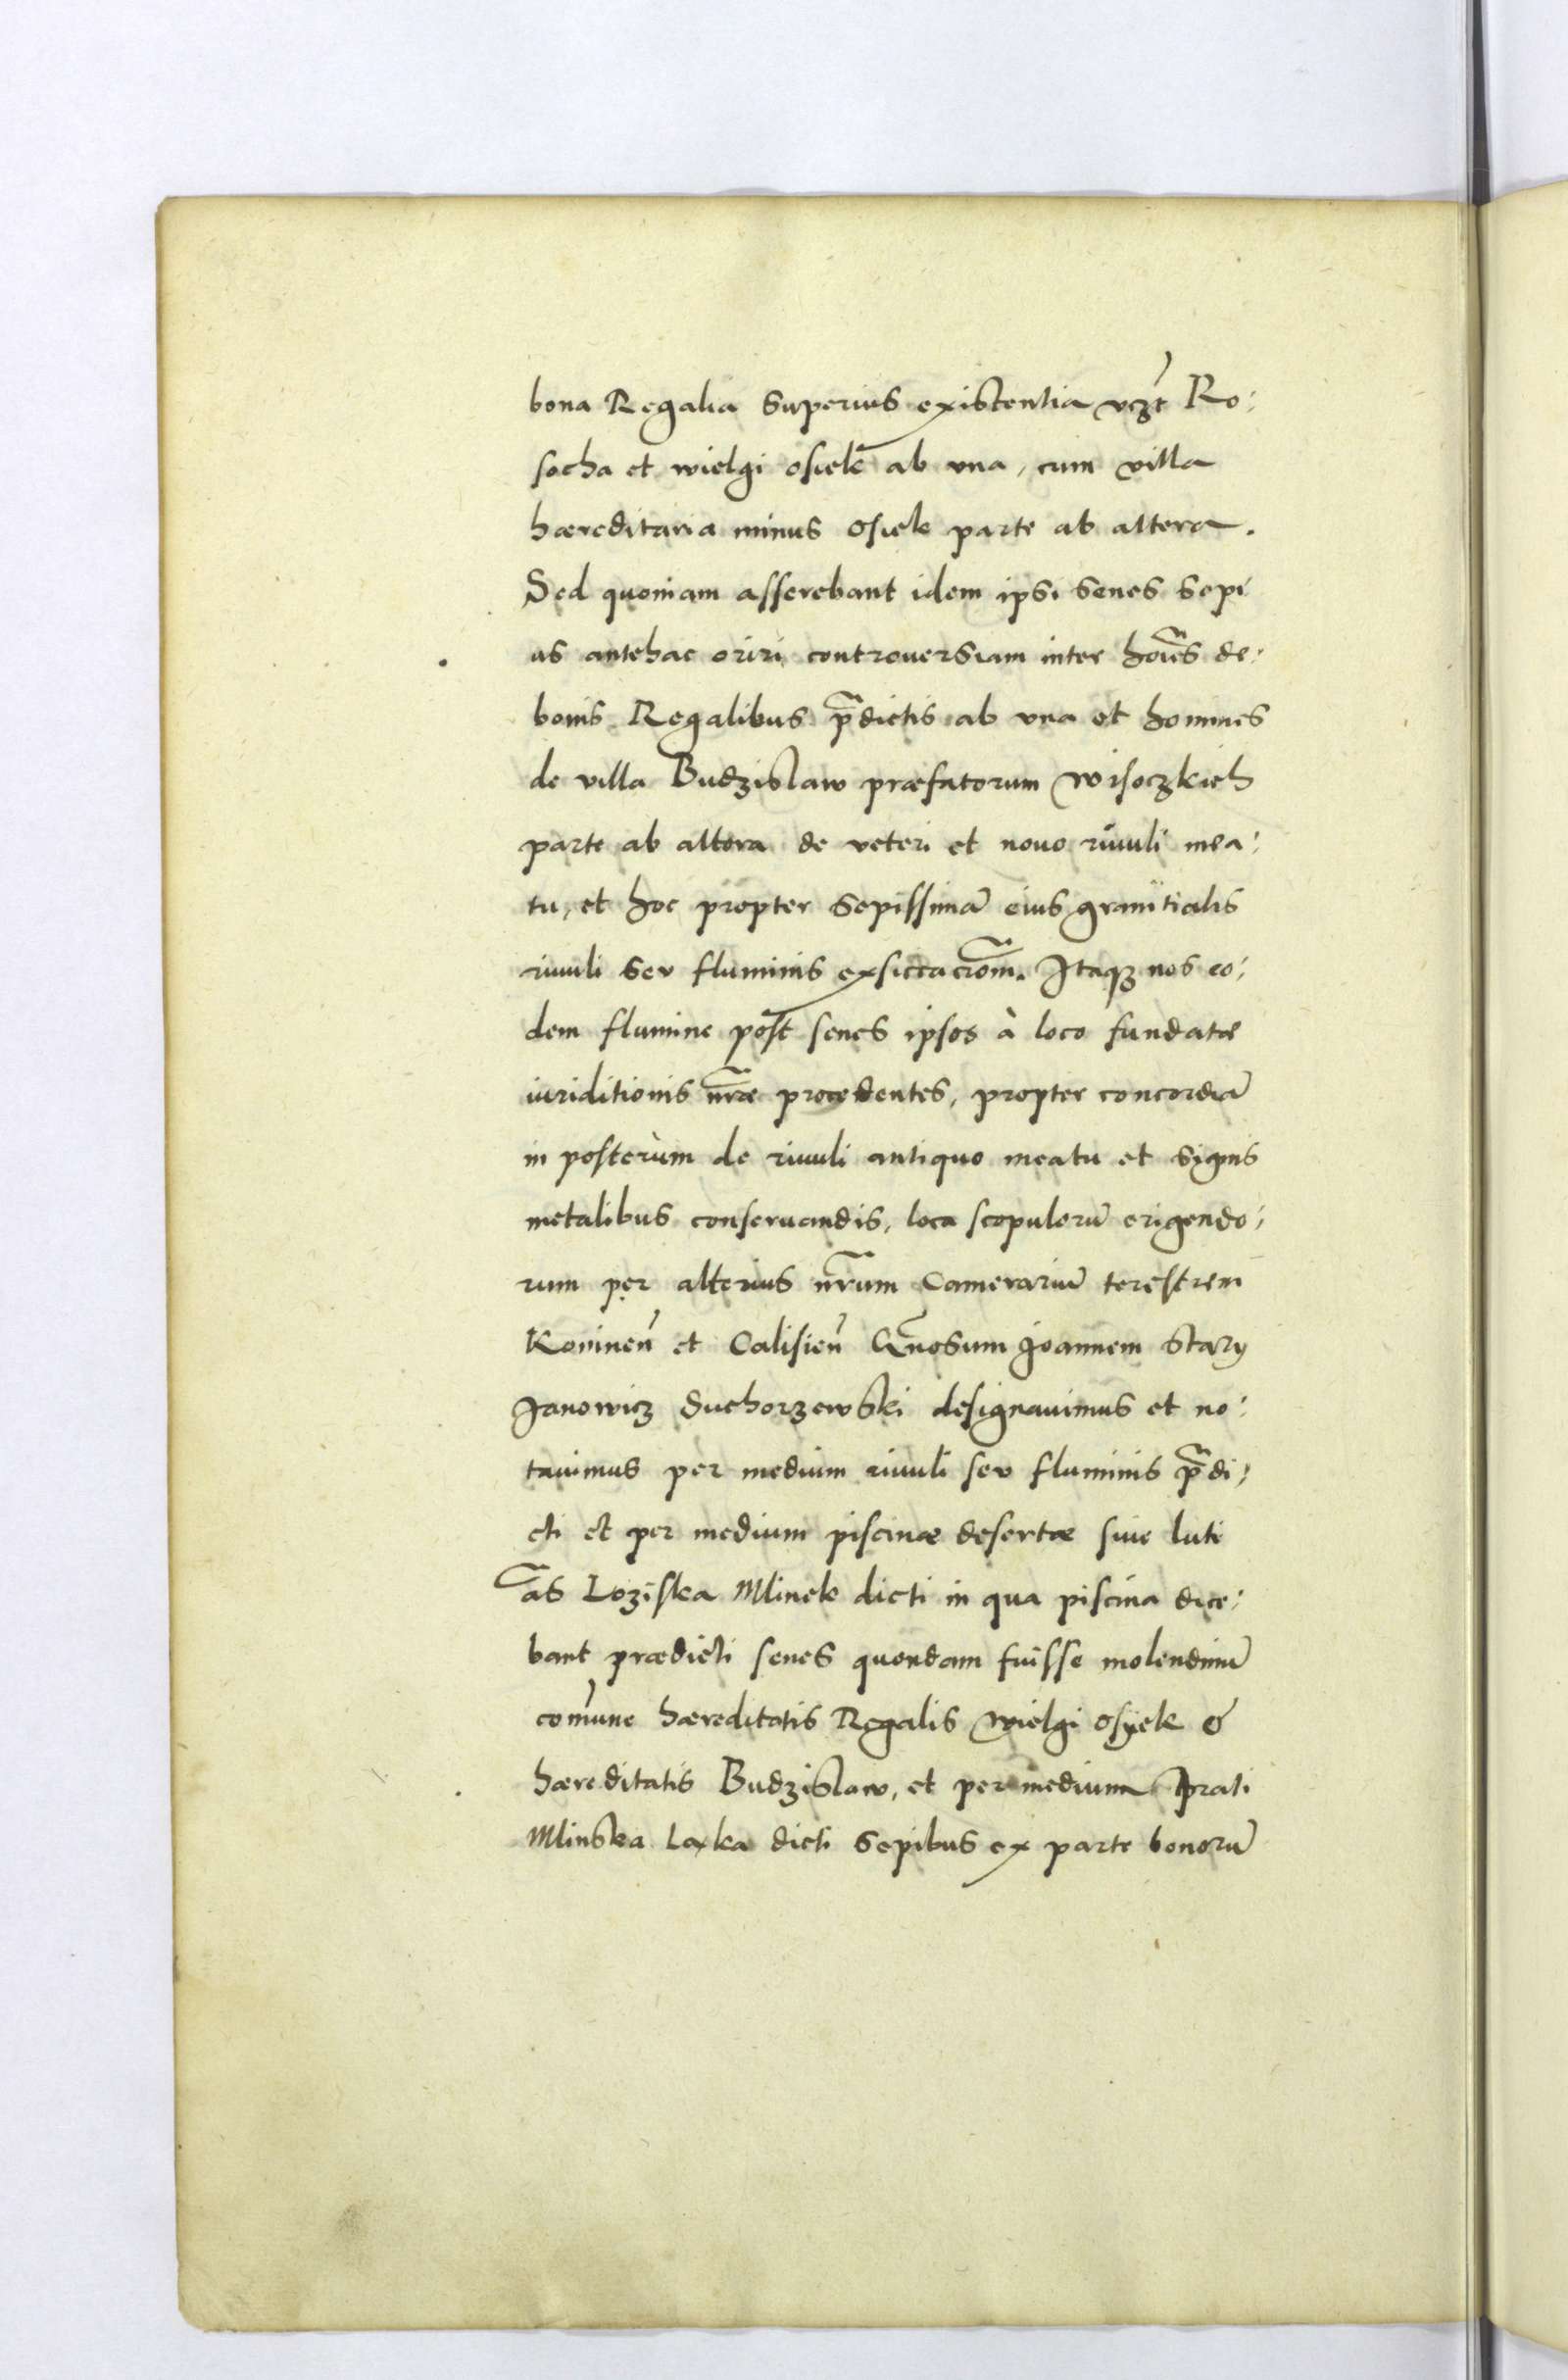 bona Regalia Superius existentia vczt Ro:
socha et wielgi osiek ab vna, cum villa
hæreditaria minus osiek parte ab altera.
Sed quoniam asserebant idem ipsi Senes Sepi
us antehac oriri controuersiam inter hoı̃es de:
bonis Regalibus p̃dictis ab vna et homines
de villa Budzislaw præfatorum Wisoczkich
parte ab altera de veteri et nouo riuuli mea:
tu, et hoc propter Sepissimã eius granitialis
riuuli Seu fluminis exsiccacio͠m. Itaqȝ nos eo:
dem flumine post senes ipsos à loco fundatæ
iuriditionis nr̃æ procedentes, propter concordiã
in posterùm de riuuli antiquo meatu et Signis
metalibus conseruandis, loca scopulorũ erigendo:
rum per alterius nr̃um Camerariũ terestrem
Koninen̄ et Calisien̄ Gn̄osum Joannem Stary
Janowicz Suchorzewski designauimus et no:
tauimus per medium riuuli seu fluminis p̃di:
cti et per medium piscinæ desertæ siue luti
as̃ Loziska Mlinek dicti in qua piscina dice:
bant prædicti senes quondam fuisse molendinũ
com̃une hæreditatis Regalis Wielgi Osyek &
hæreditatis Budzislaw, et per medium prati
Mlinska Laka dicti Sepibus ex parte bonorũ